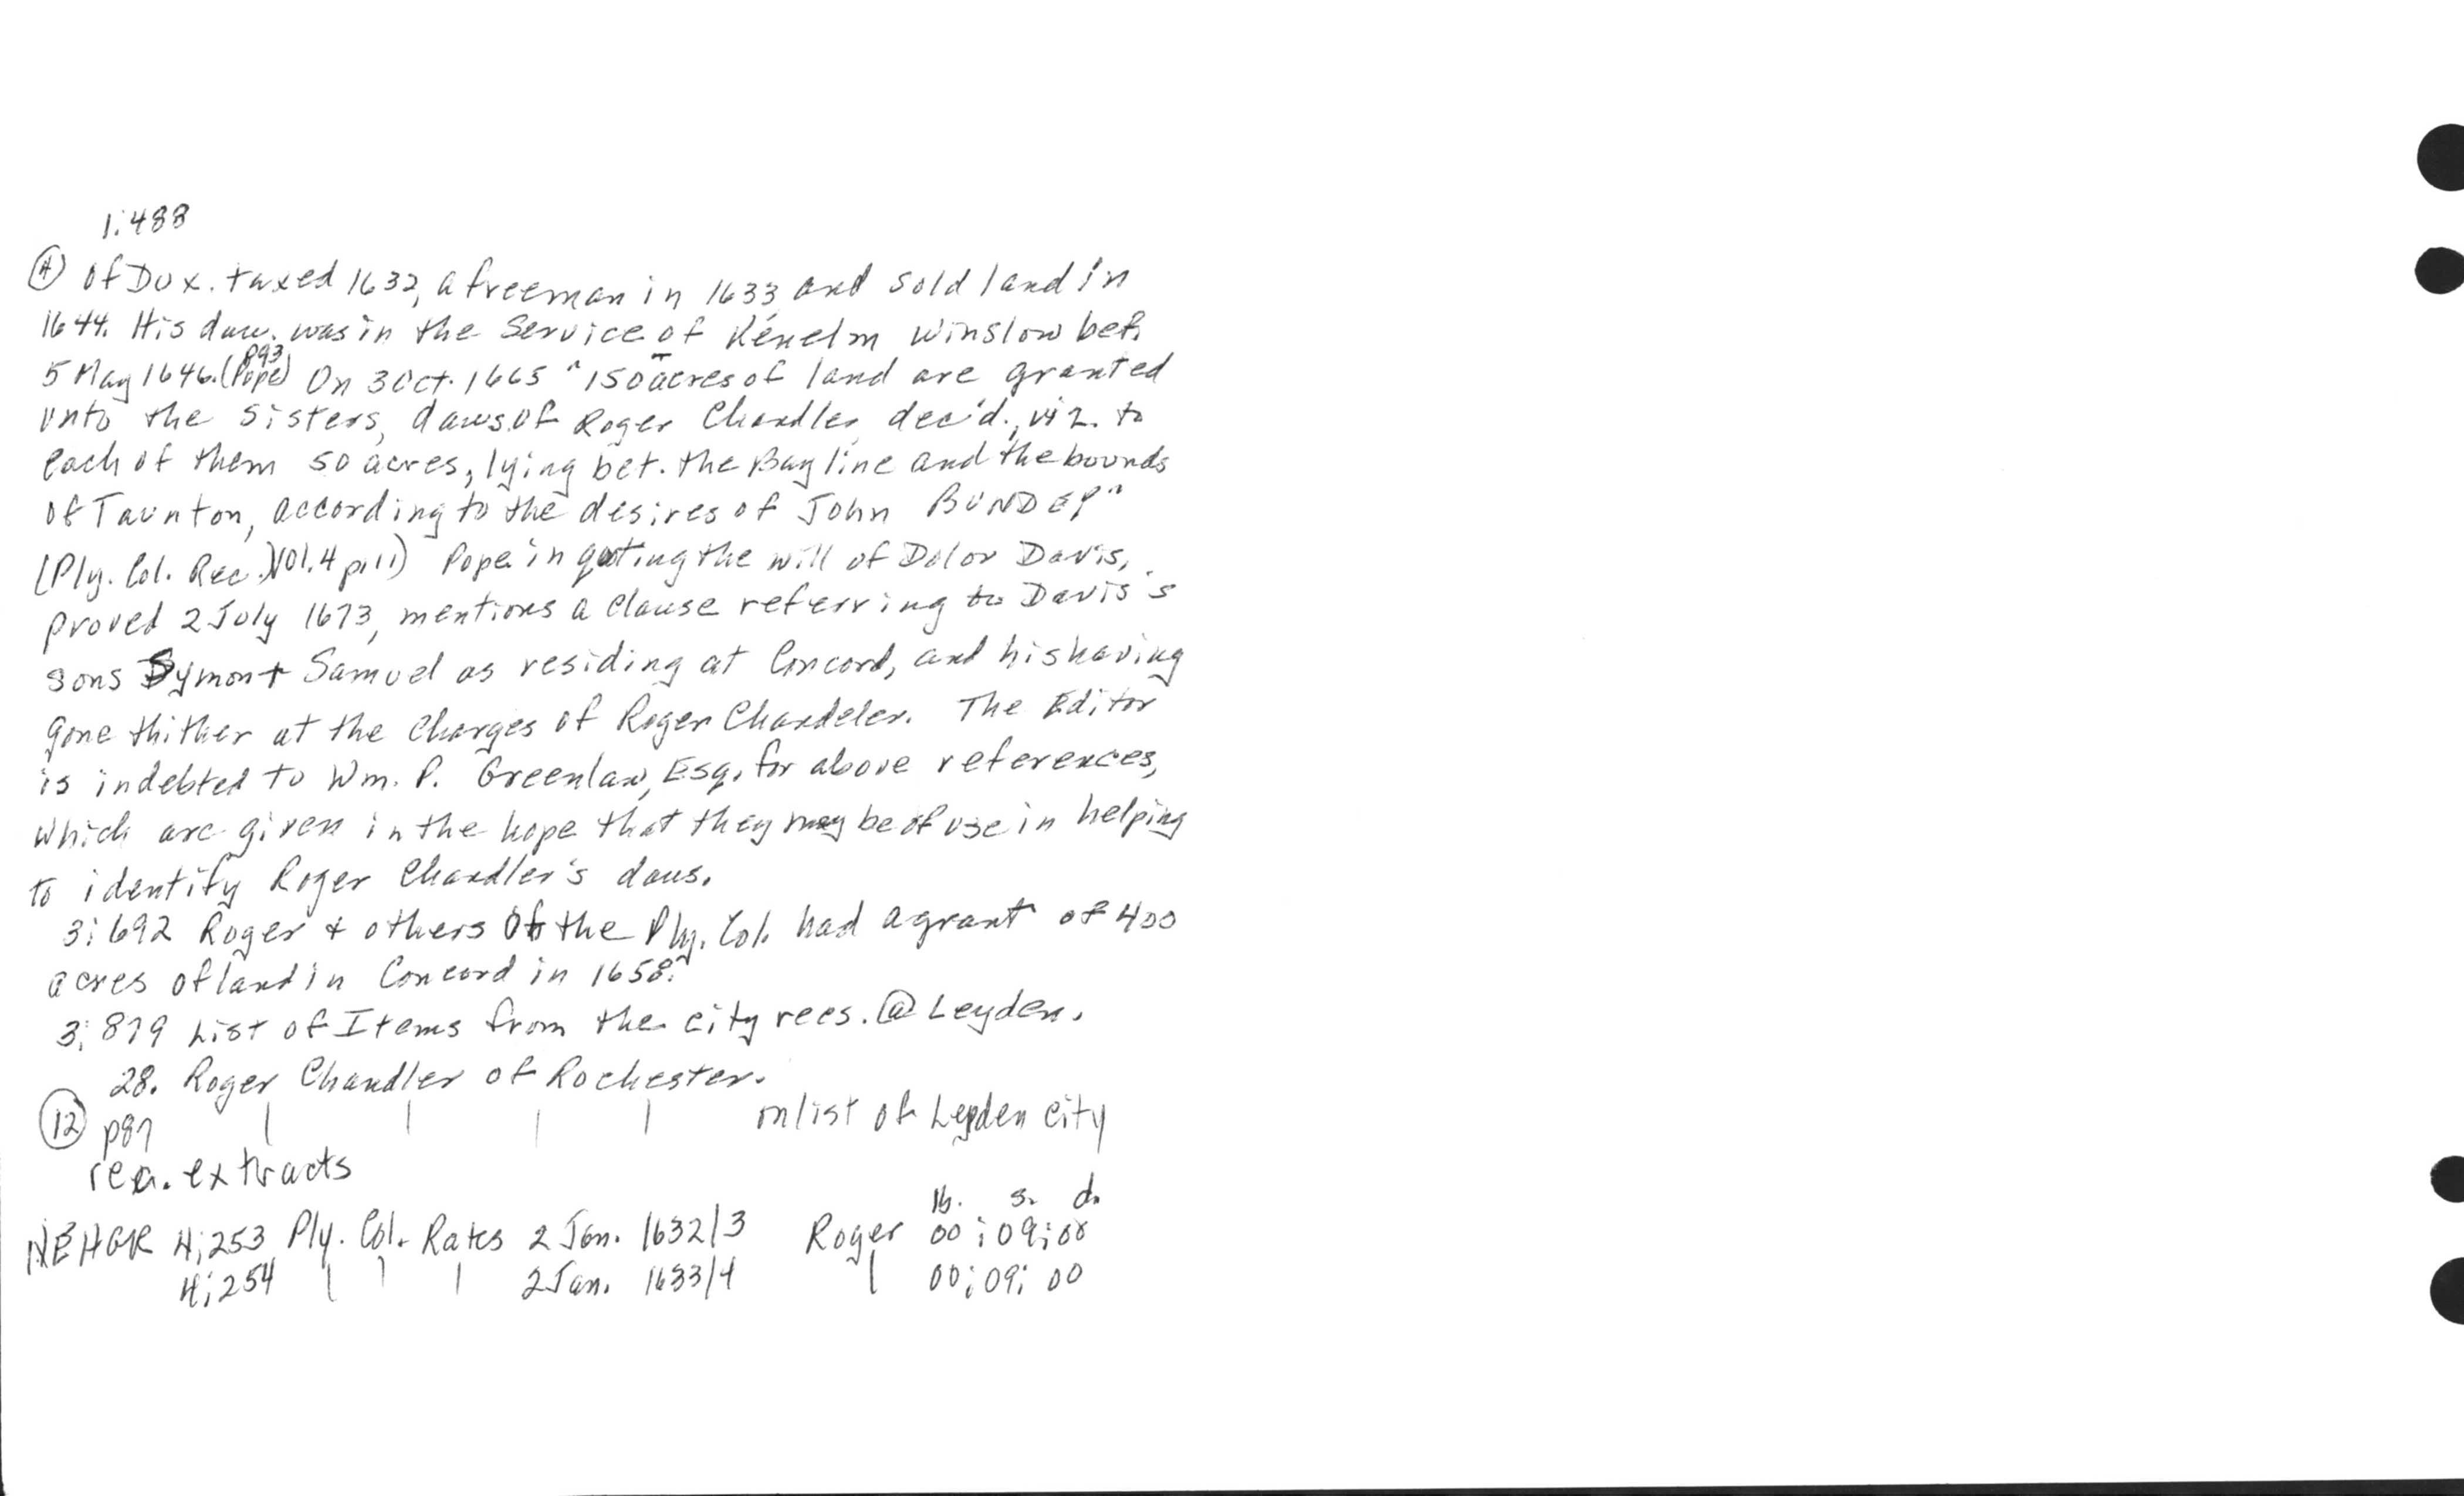 1:488
(A) Of Dux. taxed 1632, a freeman in 1633 and sold land in
1644. His dau. was in the service of Kenelm Winslow bef.
5 May 1646. (Pope p93) On 3 Oct. 1665 "150 acres of land are granted
unto the sisters, daus. of Roger Chandler dec'd., viz. to
each of them 50 acres, lying bet. the Bay line and the bounds
of Taunton, according to the desires of John BUNDEY"
(Ply. Col. Rec.) Vol. 4 p. 11) Pope in quoting the will of Dolor Davis,
proved 2 July 1673, mentions a clause referring to Davis's
sons Symon + Samuel as residing at Concord, and his having
gone thither at the charges of Roger Chandeler. The Editor
is indebted to Wm. P. Greenlaw, Esq. for above references,
which are given in the hope that they may be of use in helping
to identify Roger Chandler's daus.
3:692 Roger + others of the Ply. Col. had a grant of 400
acres of land in Concord in 1658.
3:879 List of Items from the city recs. @ Leyden.
28. Roger Chandler of Rochester.
(12) p87 | | | | on list of Leyden city
rec. extracts
lb. s. d.
NEHGR 4:253 Ply. Col. Rates 2 Jan. 1632/3 Roger 00:09:00
4:254 | | | 2 Jan. 1633/4 | 00:09:00